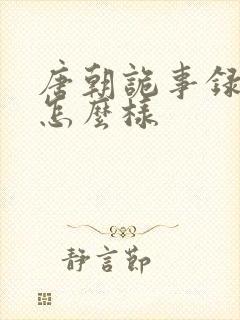 唐朝詭事録
怎麼樣
靜言節